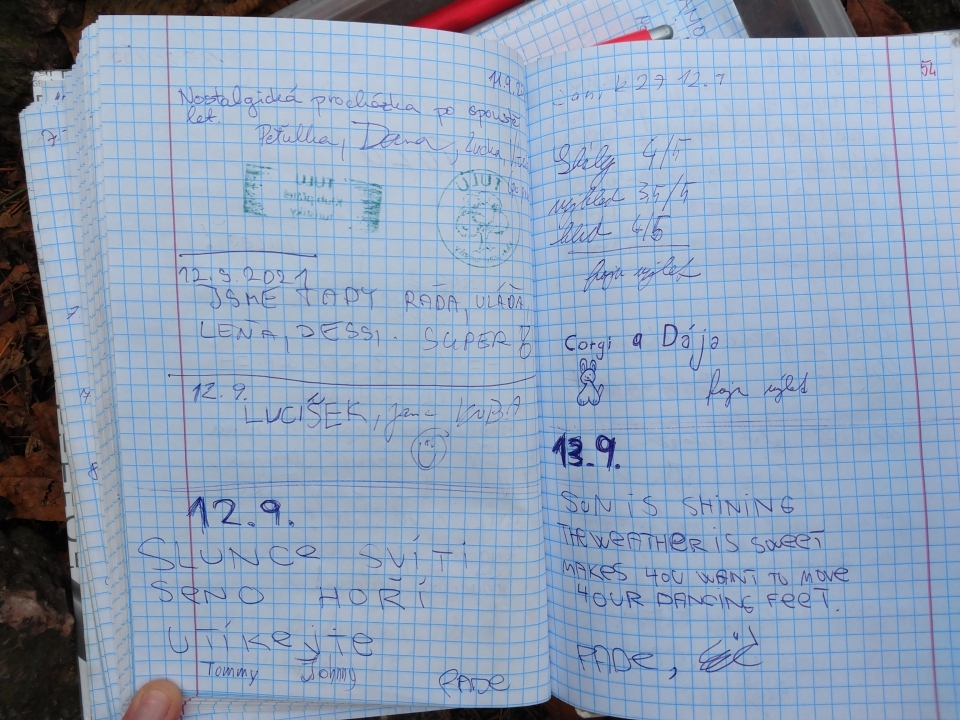 11.9.
Nostalgická procházka po spoustě
let.
Peťulka, Dana, Lucka,
TULU
12.9.2021
JSME TADY RAĎA, VLÁĎA,
LEŇA, DESSI. SUPER
12.9.
LUCIŠEK, Jana KUBA
12.9.
SLUNCe SVÍTÍ
SeNO HOŘÍ
UTÍKejTe
Tommy Johny
RADe
54
12.9
Skály 4/5
výhled 3,5/5
klid 4/5
fajn výlet
Corgi a Dája
fajn výlet
13.9.
SUN iS SHiNiNG
THE WEATHER iS SWEET
MAKES YOU WANT TO MOVE
YOUR DANCING FEET.
RADe,